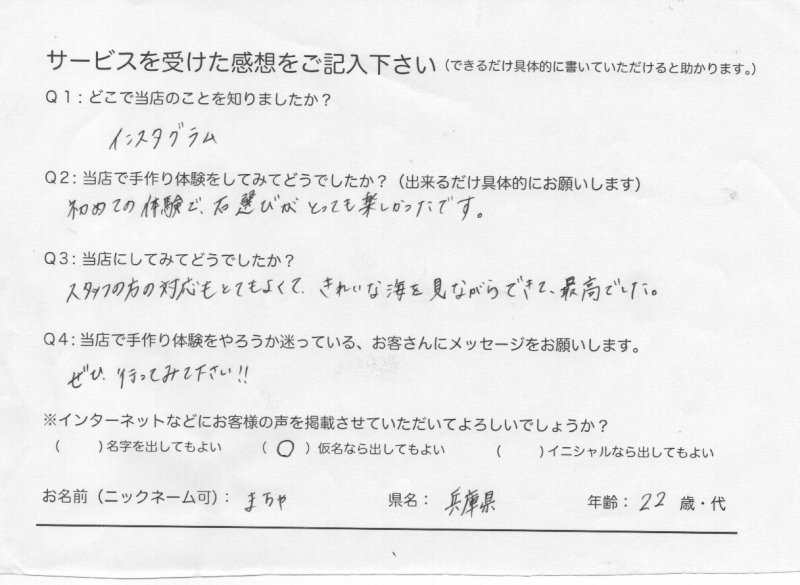 サービスを受けた感想をご記入下さい（できるだけ具体的に書いていただけると助かります。）
Q1：どこで当店のことを知りましたか？
インスタグラム
Q2：当店で手作り体験をしてみてどうでしたか？（出来るだけ具体的にお願いします）
初めての体験で、石選びがとっても楽しかったです。
Q3：当店にしてみてどうでしたか？
スタッフの方の対応もとてもよくて、きれいな海を見ながらできて、最高でした。
Q4：当店で手作り体験をやろうか迷っている、お客さんにメッセージをお願いします。
ぜひ、行ってみて下さい!!
※インターネットなどにお客様の声を掲載させていただいてよろしいでしょうか？
（　　）名字を出してもよい　（ ○ ）仮名なら出してもよい　（　　）イニシャルなら出してもよい
お名前（ニックネーム可）： まちゃ　県名： 兵庫県　年齢： 22 歳・代